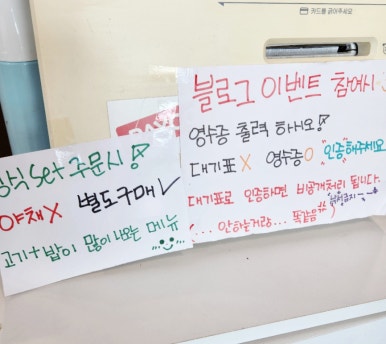 카드를 긁어주세요
식 set 주문시
야채X 별도구매✓
고기+밥이 많이 나오는 메뉴
블로그 이벤트 참여시
영수증 출력 하시오!
대기표X 영수증O "인증"해주세요
대기표로 인증하면 비공개처리 됩니다.
(... 안하는거랑... 똑같음